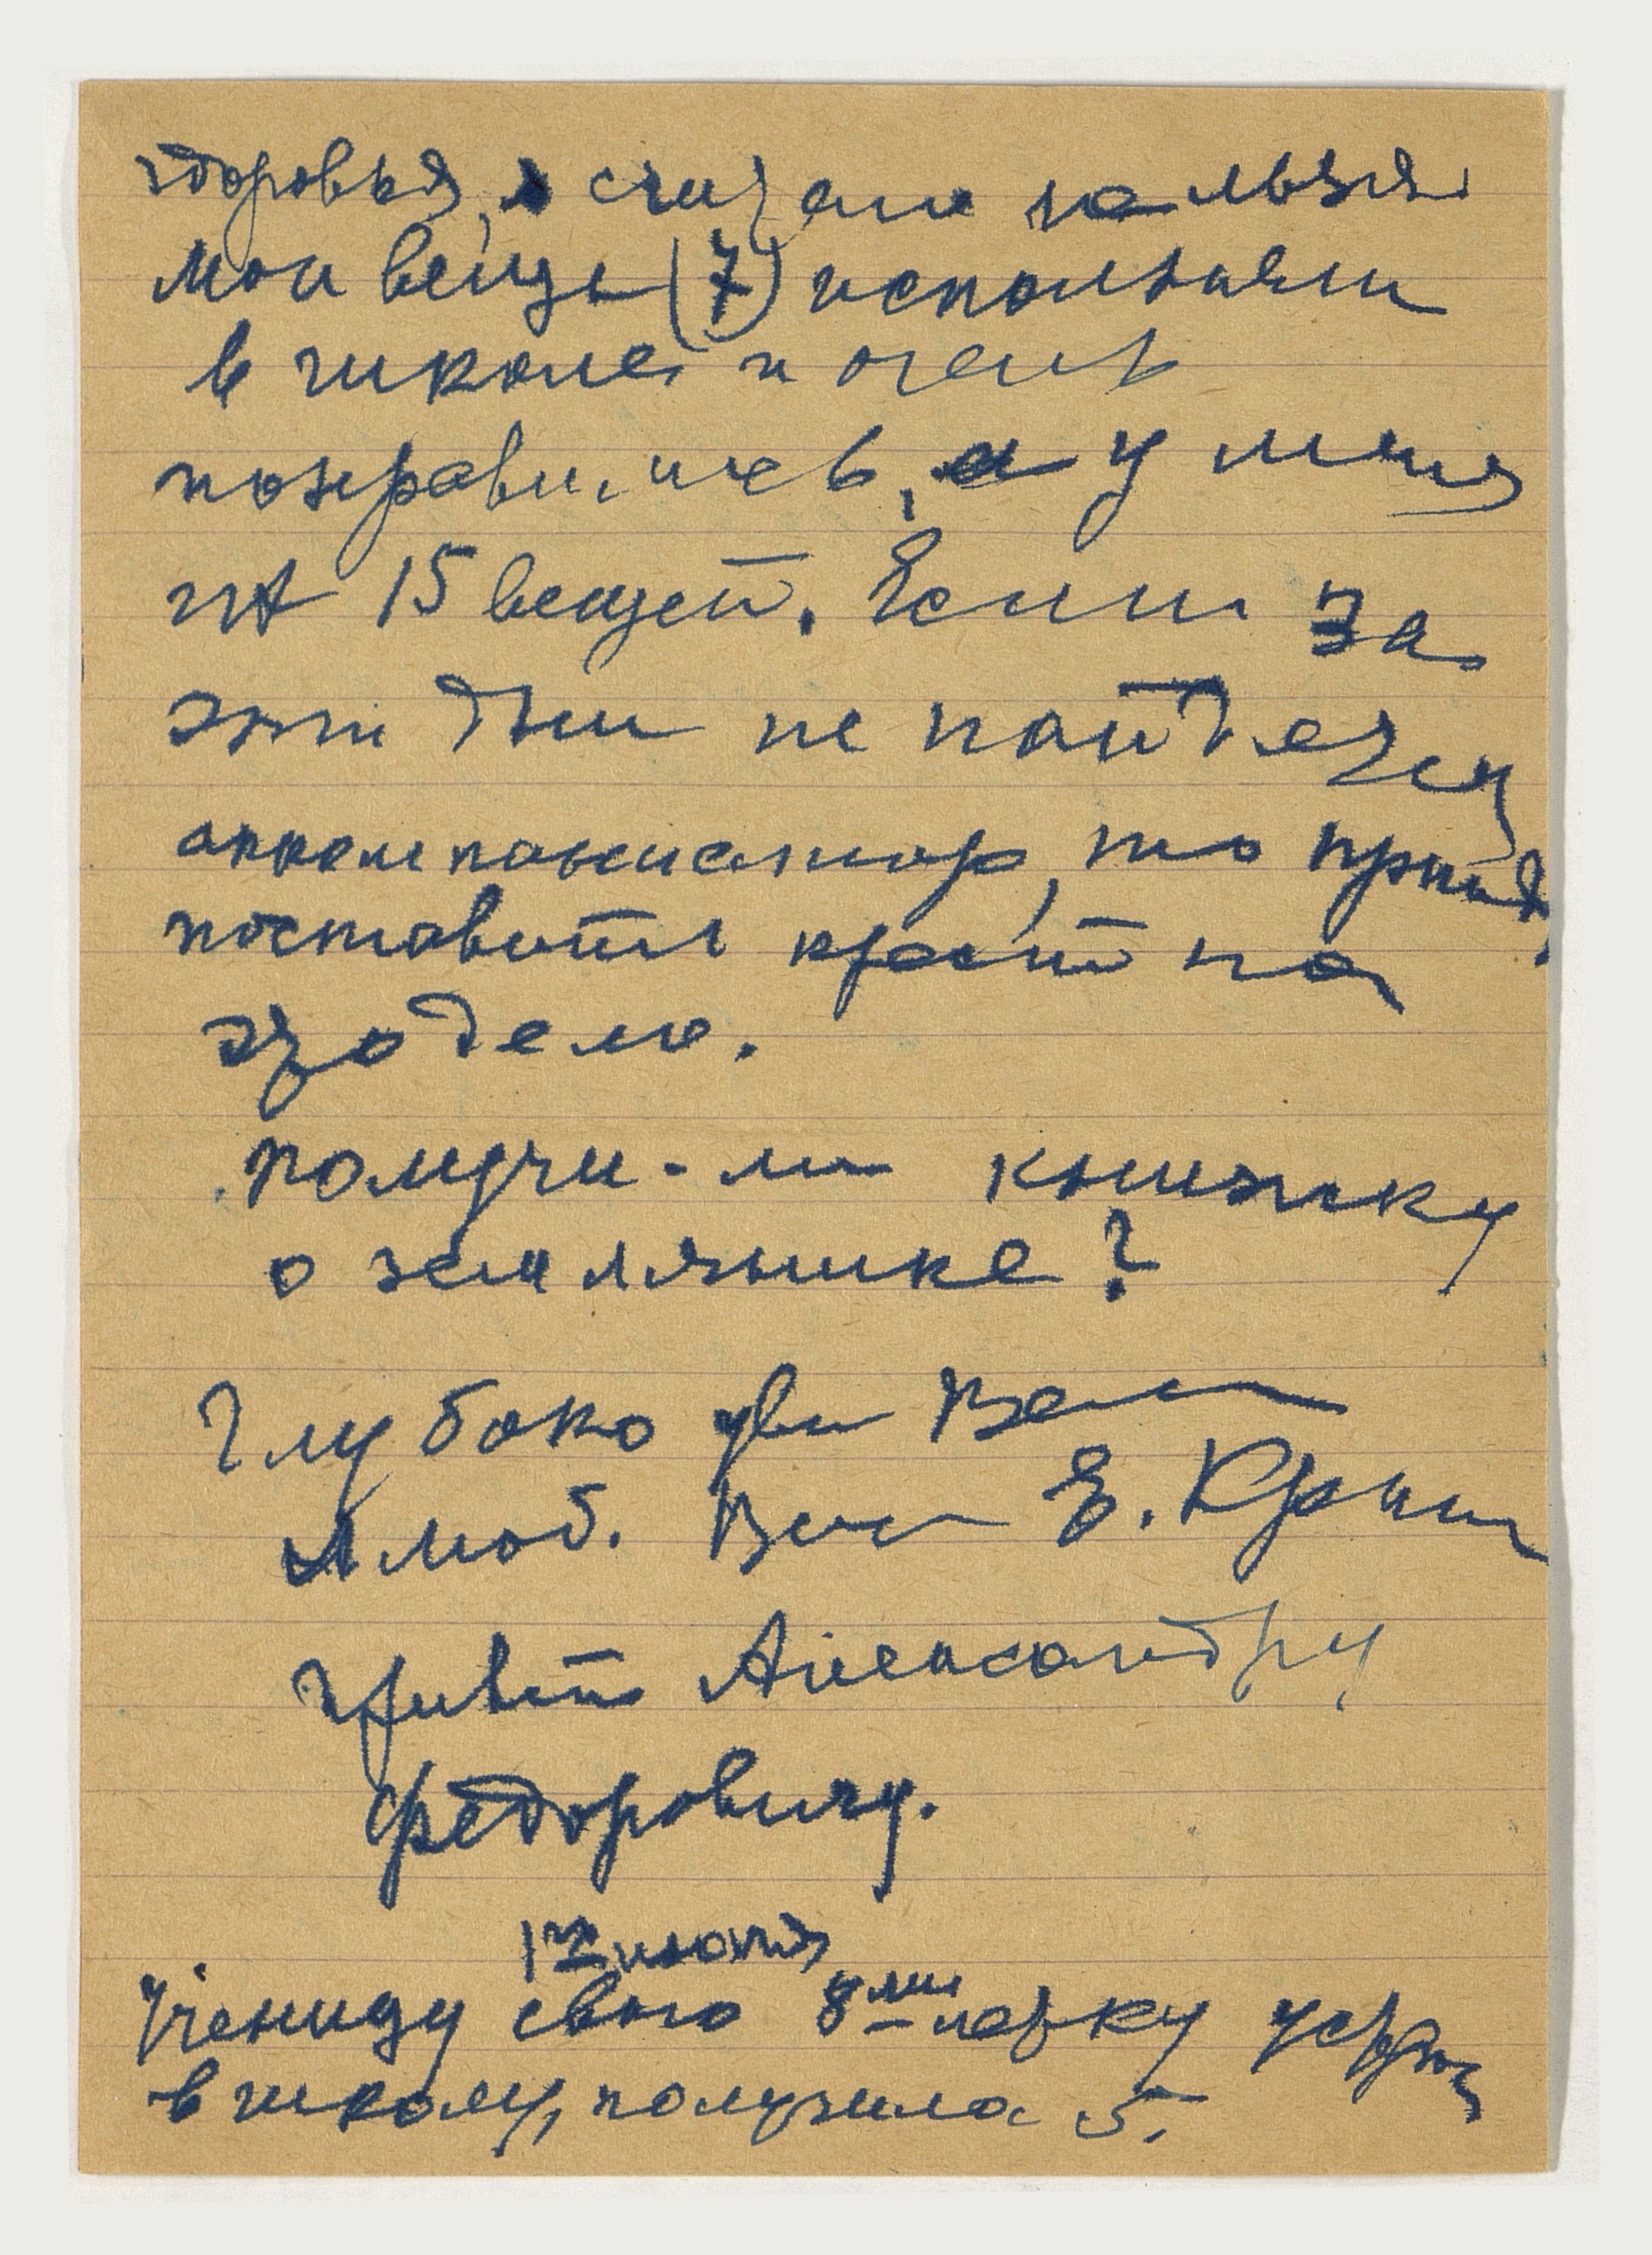 здоровья, а считаю нельзя
мои вещи (7) исполняли
в школе и очень
понравились, а у меня
их 15 вещей. Если за
эти дни не найдется
аккомпаниатор, то прид.
поставить крест на
это дело.
Получи-ли книжку
о землянике?
Глубоко ув. Вас
и люб. Вас Е.
Привет Александру
Федоровичу.
17 июня
Ученицу свою 8ми летку устр.
в школу, получила 5.